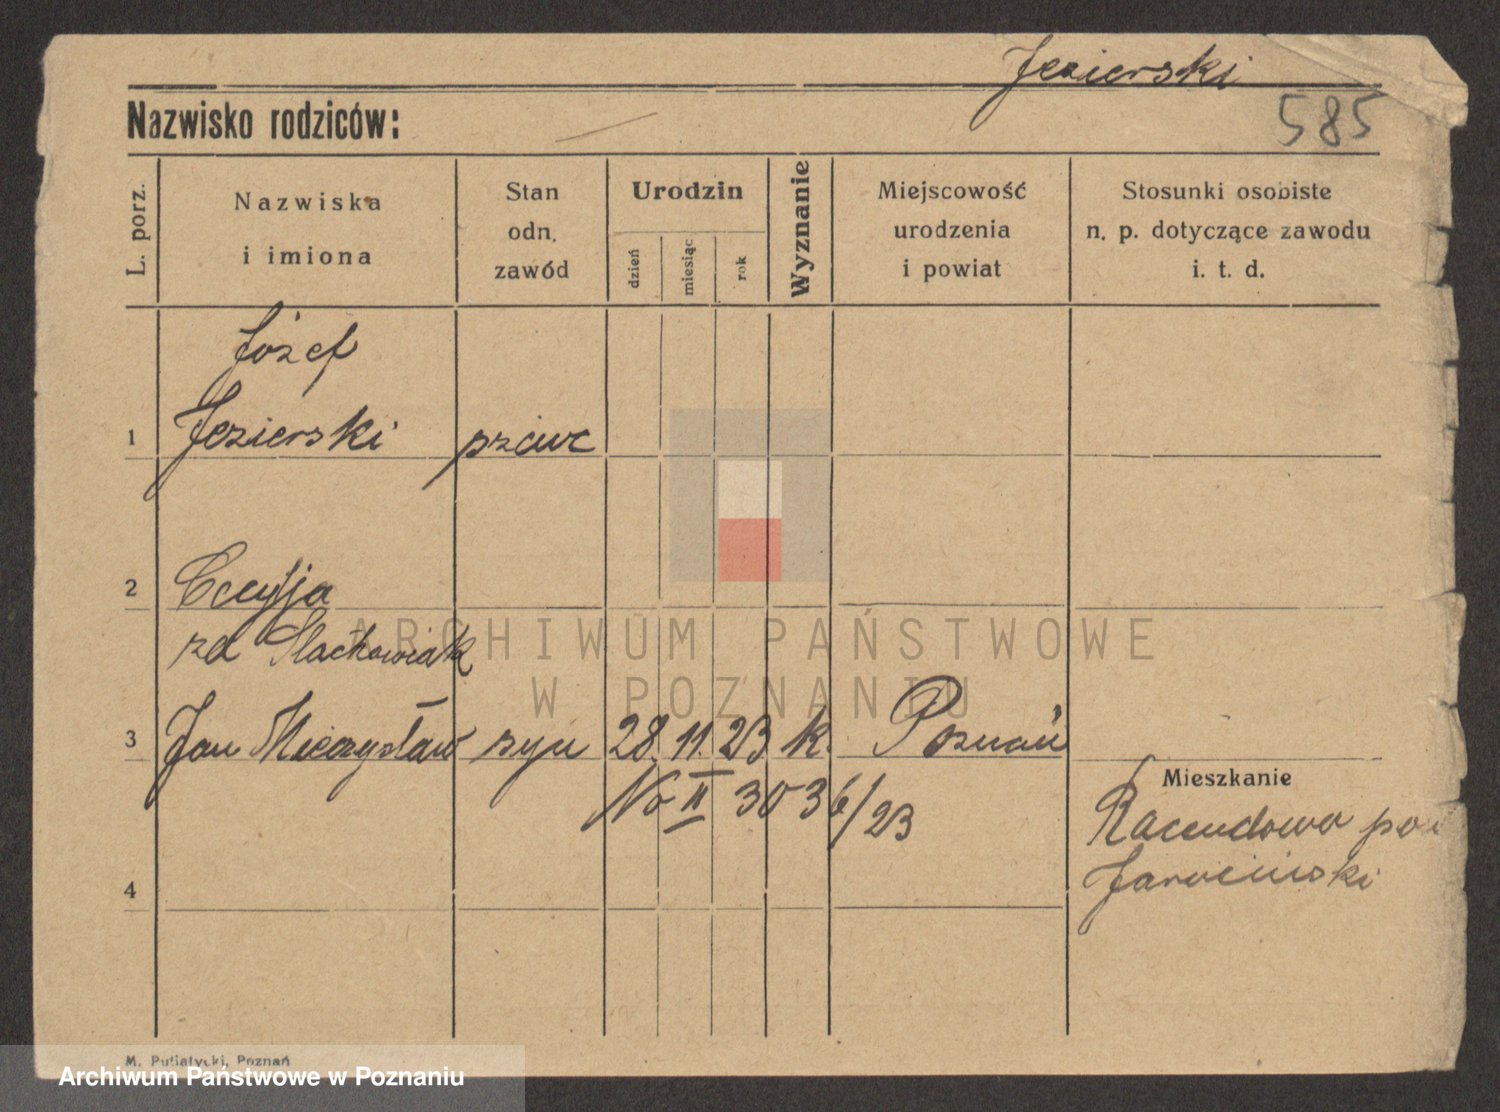 Jezierski
Nazwisko rodziców:
585
L. porz.
Nazwiska
i imiona
Stan
odn.
zawód
Urodzin
dzień
miesiąc
rok
Wyznanie
Miejscowość
urodzenia
i powiat
Stosunki osobiste
n. p. dotyczące zawodu
i. t. d.
Józef
1 Jezierski szewc
2 Cecylja
zd Stachowiak
3 Jan Mieczysław syn 28. 11. 23 k. Poznań
No II 3036/23
Mieszkanie
Racendowo pow
Jarociński
4
ARCHIWUM PAŃSTWOWE
W POZNANIU
M. Putiatycki, Poznań
Archiwum Państwowe w Poznaniu